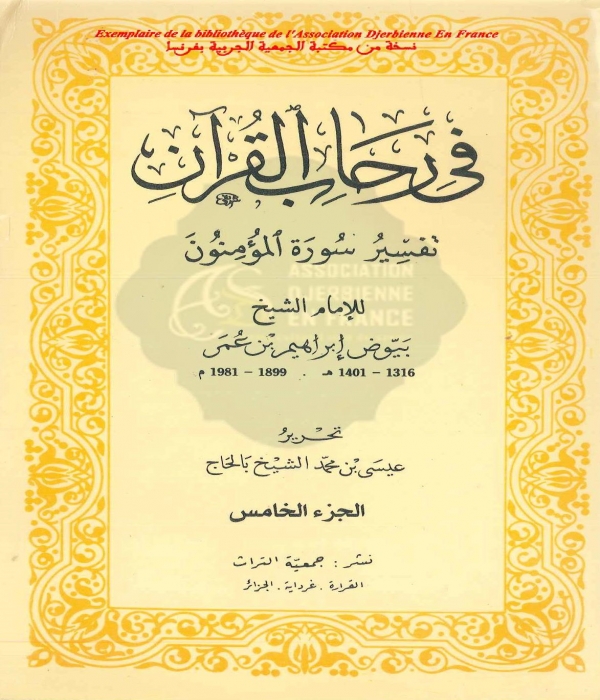 Exemplaire de la bibliothèque de l'Association Djerbienne En France
نسخة من مكتبة الجمعية الجربية بفرنسا
في رحاب القرآن
تفسير سورة المؤمنون
ASSOCIATION
DJERBIENNE
EN FRANCE
للإمام الشيخ
بيوض إبراهيم بن عمر
1316 – 1401 هـ . 1899 – 1981 م
تحرير
عيسى بن محمد الشيخ بالحاج
الجزء الخامس
نشر : جمعية التراث
القرارة . غرداية . الجزائر